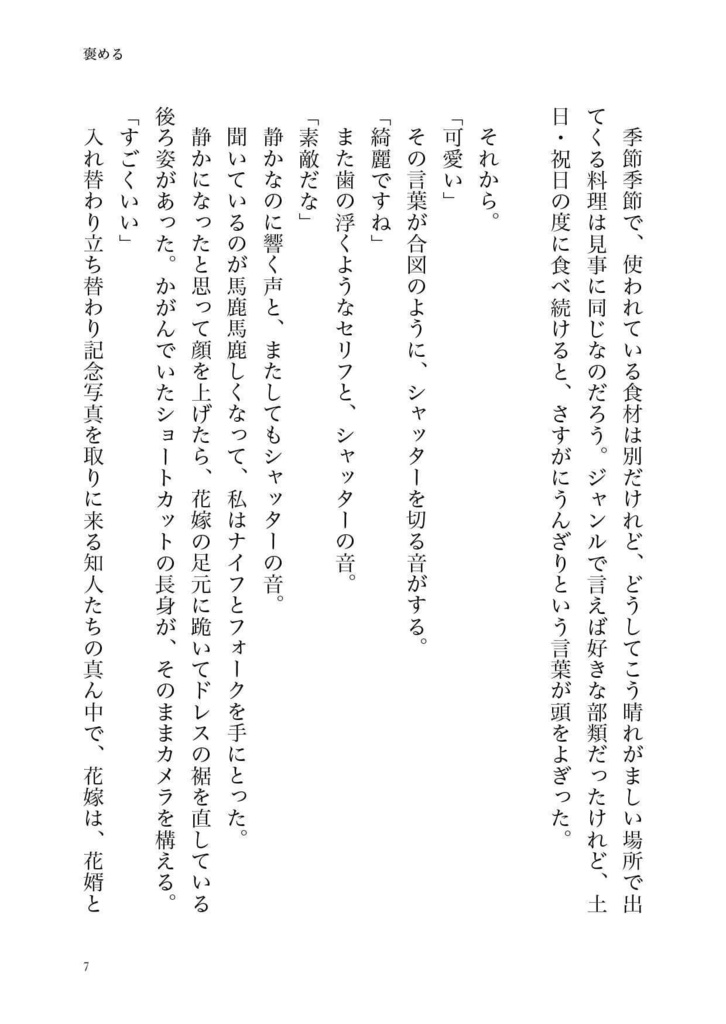 褒める
季節季節で、使われている食材は別だけれど、どうしてこう晴れがましい場所で出
てくる料理は見事に同じなのだろう。ジャンルで言えば好きな部類だったけれど、土
日・祝日の度に食べ続けると、さすがにうんざりという言葉が頭をよぎった。
それから。
「可愛い」
その言葉が合図のように、シャッターを切る音がする。
「綺麗ですね」
また歯の浮くようなセリフと、シャッターの音。
「素敵だな」
静かなのに響く声と、またしてもシャッターの音。
聞いているのが馬鹿馬鹿しくなって、私はナイフとフォークを手にとった。
静かになったと思って顔を上げたら、花嫁の足元に跪いてドレスの裾を直している
後ろ姿があった。かがんでいたショートカットの長身が、そのままカメラを構える。
「すごくいい」
入れ替わり立ち替わり記念写真を取りに来る知人たちの真ん中で、花嫁は、花婿と
7